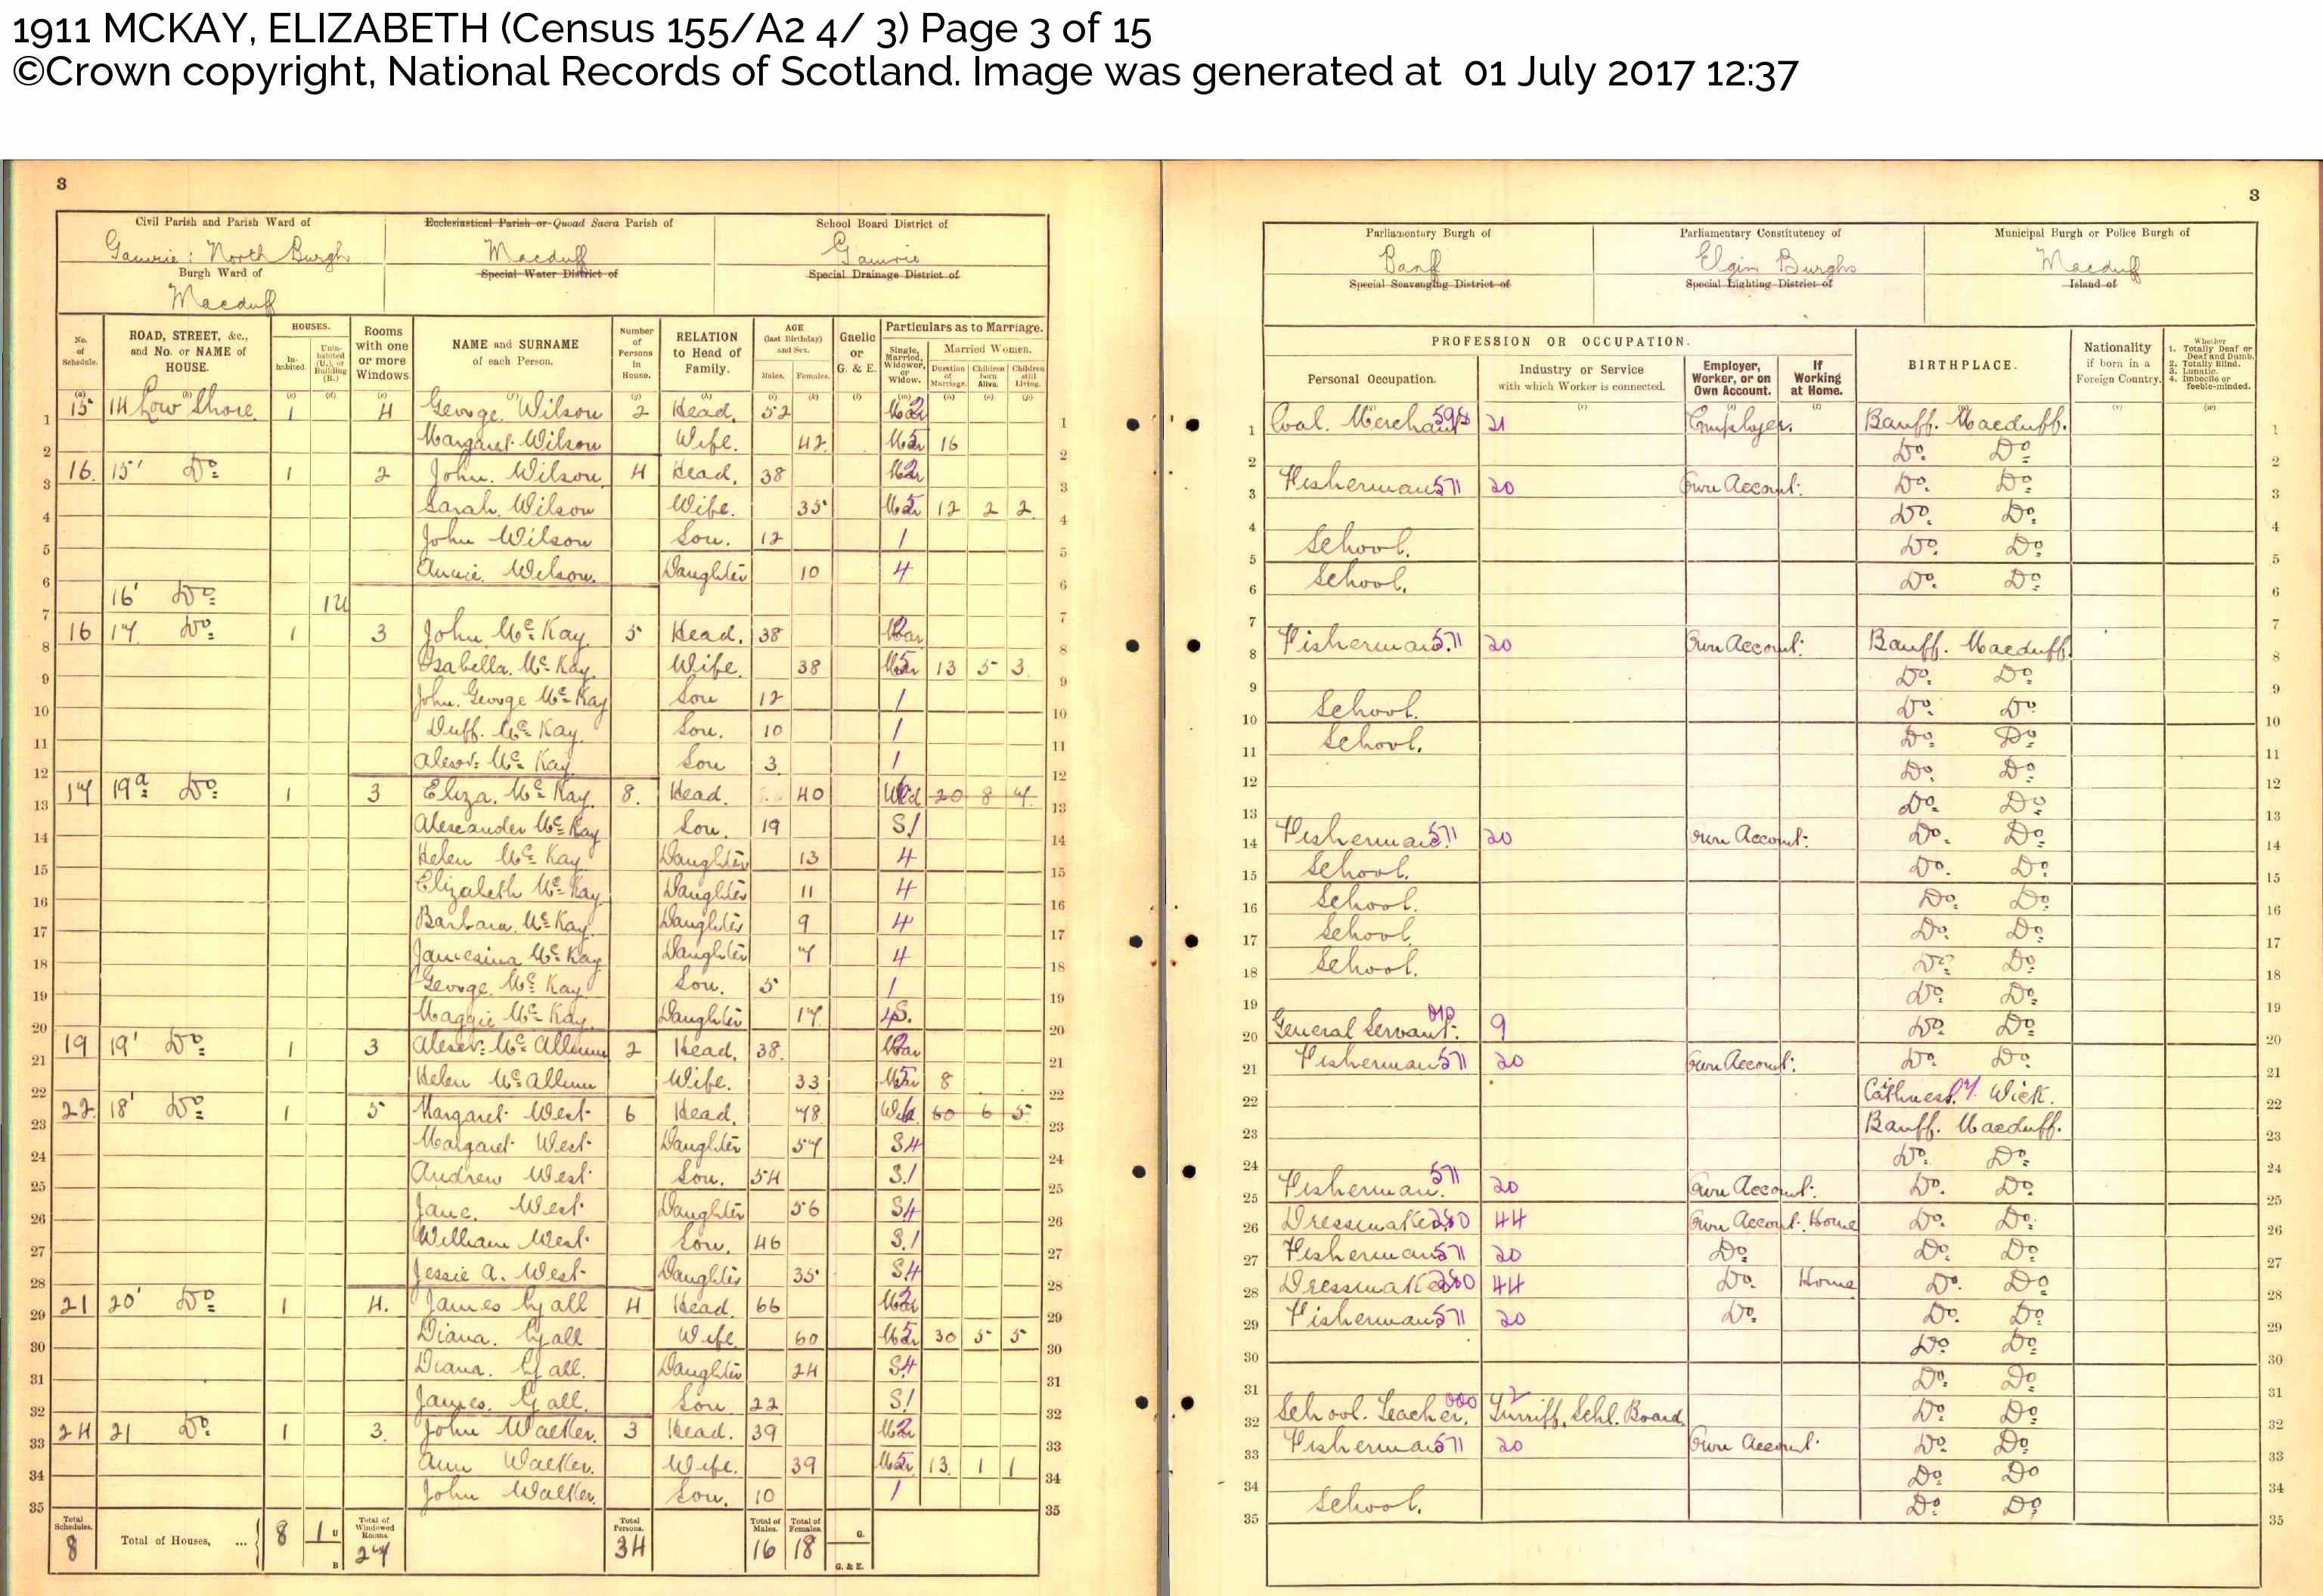 1911 MCKAY, ELIZABETH (Census 155/A2 4/ 3) Page 3 of 15
©Crown copyright, National Records of Scotland. Image was generated at 01 July 2017 12:37
3
Civil Parish and Parish Ward of Ecclesiastical Parish or Quoad Sacra Parish of School Board District of
Gamrie: North Burgh Macduff Gamrie
Burgh Ward of Special Water District of Special Drainage District of
Macduff
No. of Schedule. ROAD, STREET, &c., and No. or NAME of HOUSE. HOUSES. Inhabited. Uninhabited (U.), or Building (B.) Rooms with one or more Windows NAME and SURNAME of each Person. Number of Persons in House. RELATION to Head of Family. AGE (last Birthday) and Sex. Males. Females. Gaelic or G. & E. Particulars as to Marriage. Single, Married, Widower, or Widow. Married Women. Duration of Marriage. Children born Alive. Children still Living.
(a) (b) (c) (d) (e) (f) (g) (h) (i) (k) (l) (m) (n) (o) (p)
1 15 14 Low Shore 1 4 George Wilson 2 Head. 52 Mar 2 1
2 Margaret Wilson Wife. 42 Mar 5 16 2
3 16. 15 Do 1 2 John. Wilson. 4 Head. 38 Mar 2 3
4 Sarah. Wilson Wife. 35 Mar 5 12 2 2 4
5 John Wilson Son. 12 1 5
6 Annie. Wilson. Daughter 10 4 6
7 16 Do 1U 7
8 16 17. Do 1 3 John McKay 5 Head. 38 Mar 2 8
9 Isabella. McKay. Wife. 38 Mar 5 13 5 3 9
10 John. George McKay Son 12 1 10
11 Duff. McKay. Son. 10 1 11
12 Alexr. McKay Son 3. 1 12
13 17 19a Do 1 3 Eliza. McKay. 8. Head. 40 Wid 20 8 7 13
14 Alexander McKay Son. 19 S 1 14
15 Helen McKay Daughter 13 4 15
16 Elizabeth McKay Daughter 11 4 16
17 Barbara. McKay. Daughter 9 4 17
18 Jamesina McKay Daughter 7 4 18
19 George. McKay Son. 5 1 19
20 Maggie McKay. Daughter 17. 4 S. 20
21 19 19 Do 1 3 Alexr. McAllum 2 Head. 38. Mar 2 21
22 Helen McAllum Wife. 33 Mar 5 8 22
23 22. 18 Do 1 5 Margaret West 6 Head. 78 Wid. 60 6 5 23
24 Margaret West Daughter 57 S 4 24
25 Andrew West Son. 54 S. 1 25
26 Jane. West Daughter 56 S 4 26
27 William West Son. 46 S. 1 27
28 Jessie A. West Daughter 35 S 4 28
29 21 20 Do 1 4. James Gall 4 Head. 66 Mar 2 29
30 Diana. Gall Wife. 60 Mar 5 30 5 5 30
31 Diana. Gall. Daughter 24 S 4 31
32 James. Gall. Son 22 S 1 32
33 24 21 Do 1 3. John Walker. 3 Head. 39 Mar 2 33
34 Ann Walker. Wife. 39 Mar 5 13. 1 1 34
35 John Walker. Son. 10 1 35
Total Schedules. 8 Total of Houses, ... 8 1 U B Total of Windowed Rooms. 27 Total Persons. 34 Total of Males. 16 Total of Females. 18 G. G. & E.
3
Parliamentary Burgh of Parliamentary Constituency of Municipal Burgh or Police Burgh of
Banff Elgin Burghs Macduff
Special Scavenging District of Special Lighting District of Island of
PROFESSION OR OCCUPATION. Personal Occupation. Industry or Service with which Worker is connected. Employer, Worker, or on Own Account. If Working at Home. BIRTHPLACE. Nationality if born in a Foreign Country. Whether 1. Totally Deaf or Deaf and Dumb. 2. Totally Blind. 3. Lunatic. 4. Imbecile or feeble-minded.
1 Coal. Merchant 21 Employer. Banff. Macduff. 1
2 Do. Do 2
3 Fisherman 571 20 Own Account. Do. Do 3
4 Do. Do. 4
5 School. Do. Do 5
6 School. Do. Do 6
7 7
8 Fisherman 571 20 Own Account. Banff. Macduff 8
9 Do. Do 9
10 School. Do. Do 10
11 School. Do. Do 11
12 Do. Do 12
13 Do. Do 13
14 Fisherman 571 20 Own Account. Do. Do 14
15 School. Do. Do 15
16 School. Do. Do 16
17 School Do. Do 17
18 School. Do Do 18
19 Do. Do 19
20 General Servant. 9 Do Do 20
21 Fisherman 571 20 Own Account. Do. Do 21
22 Caithness. Wick. 22
23 Banff. Macduff. 23
24 Do. Do 24
25 Fisherman. 571 20 Own Account. Do. Do 25
26 Dressmaker 44 Own Account. Home Do. Do. 26
27 Fisherman 571 20 Do Do. Do 27
28 Dressmaker 44 Do. Home Do. Do 28
29 Fisherman 571 20 Do. Do. Do 29
30 Do Do 30
31 Do. Do 31
32 School. Teacher. Turriff. Schl. Board. Do. Do 32
33 Fisherman 571 20 Own Account. Do Do 33
34 Do Do 34
35 School. Do Do 35